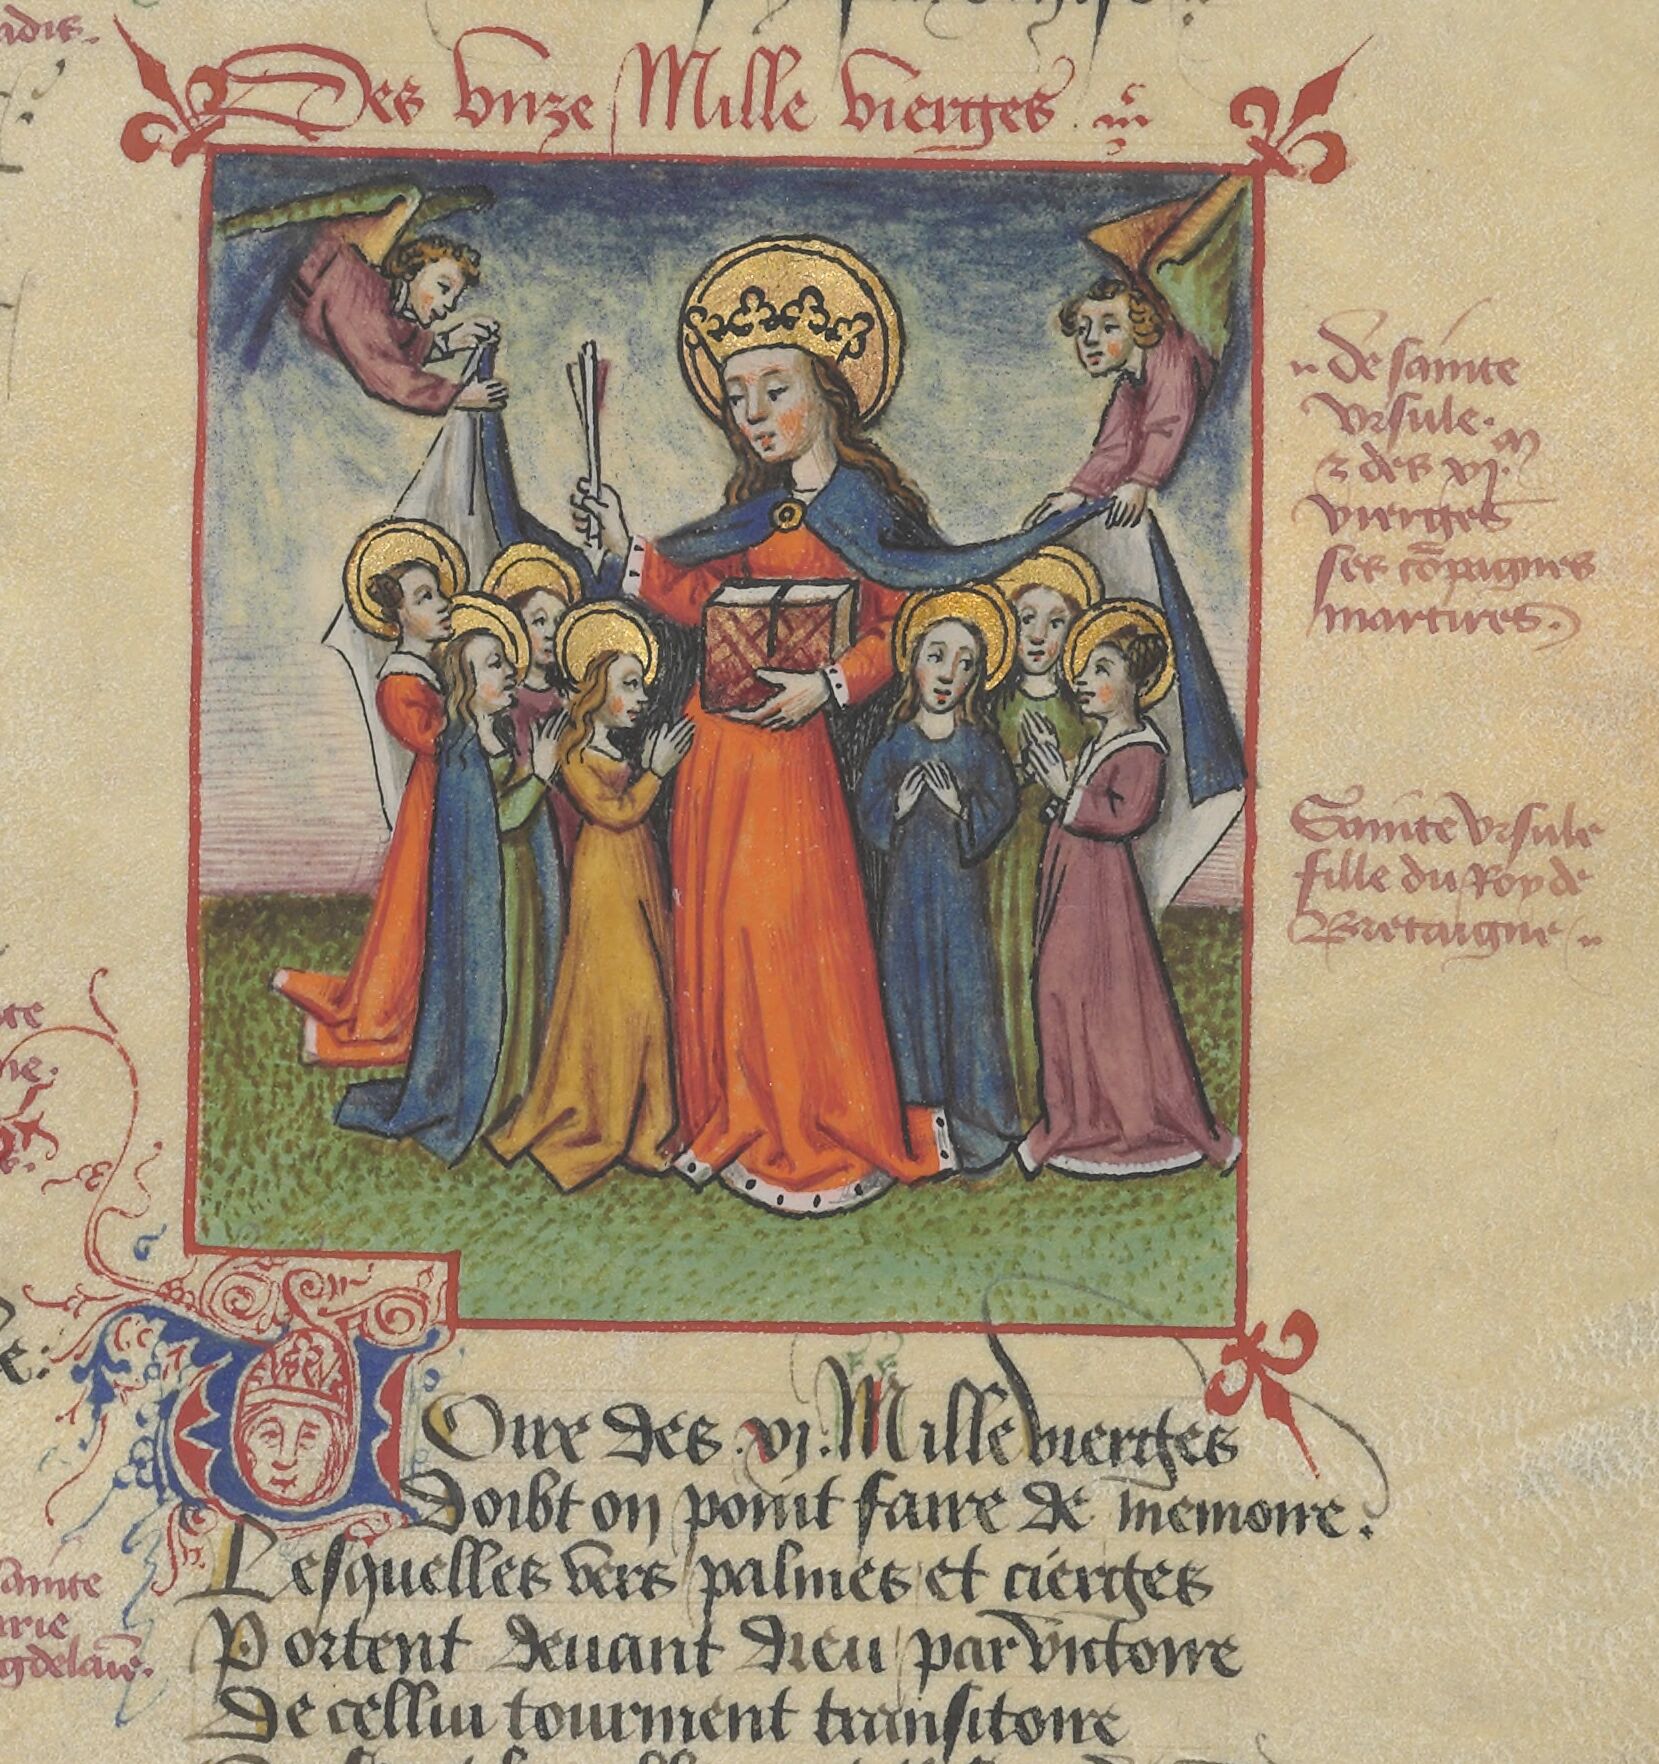 Des vnze Mille vierges
de sainte
vrsule.
⁊ des xj. M
vierges
ses cõpaignes
martires.
Sainte vrsule
fille du Roy de
Bretaigne
Oire des .xj. Mille vierges
Doibt on point faire de memoire.
Lesquelles vers palmes et cierges
Portent deuant dieu par victoire
De cellui tourment transitoire